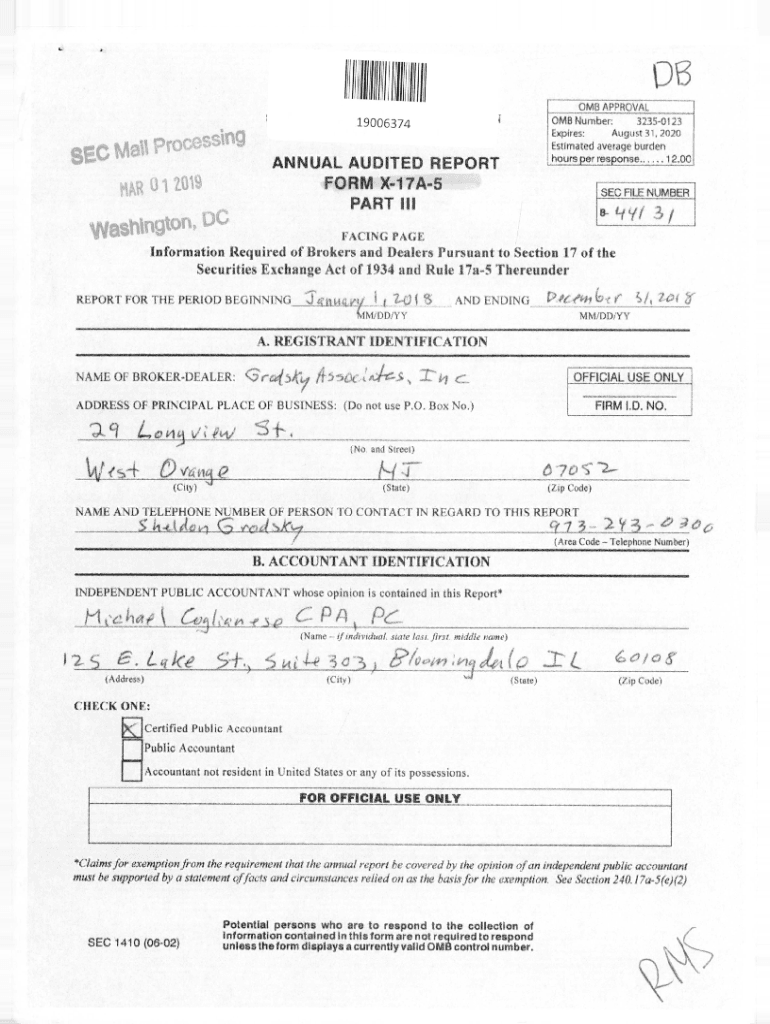 DB
19006374
OMB APPROVAL
OMB Number: 3235-0123
Expires: August 31, 2020
Estimated average burden
hours per response...... 12.00
SEC Mail Processing
MAR 01 2019
Washington, DC
ANNUAL AUDITED REPORT
FORM X-17A-5
PART III
SEC FILE NUMBER
8- 44131
FACING PAGE
Information Required of Brokers and Dealers Pursuant to Section 17 of the
Securities Exchange Act of 1934 and Rule 17a-5 Thereunder
REPORT FOR THE PERIOD BEGINNING January 1, 2018 AND ENDING December 31, 2018
MM/DD/YY MM/DD/YY
A. REGISTRANT IDENTIFICATION
NAME OF BROKER-DEALER: Grodsky Associates, Inc
OFFICIAL USE ONLY
ADDRESS OF PRINCIPAL PLACE OF BUSINESS: (Do not use P.O. Box No.)
FIRM I.D. NO.
29 Longview St.
(No. and Street)
West Orange NJ 07052
(City) (State) (Zip Code)
NAME AND TELEPHONE NUMBER OF PERSON TO CONTACT IN REGARD TO THIS REPORT
Sheldon Grodsky 973-243-0300
(Area Code – Telephone Number)
B. ACCOUNTANT IDENTIFICATION
INDEPENDENT PUBLIC ACCOUNTANT whose opinion is contained in this Report*
Michael Coglianese CPA, PC
(Name – if individual, state last, first, middle name)
125 E. Lake St., Suite 303, Bloomingdale IL 60108
(Address) (City) (State) (Zip Code)
CHECK ONE:
Certified Public Accountant
Public Accountant
Accountant not resident in United States or any of its possessions.
FOR OFFICIAL USE ONLY
*Claims for exemption from the requirement that the annual report be covered by the opinion of an independent public accountant
must be supported by a statement of facts and circumstances relied on as the basis for the exemption. See Section 240.17a-5(e)(2)
Potential persons who are to respond to the collection of
information contained in this form are not required to respond
unless the form displays a currently valid OMB control number.
SEC 1410 (06-02)
RMS